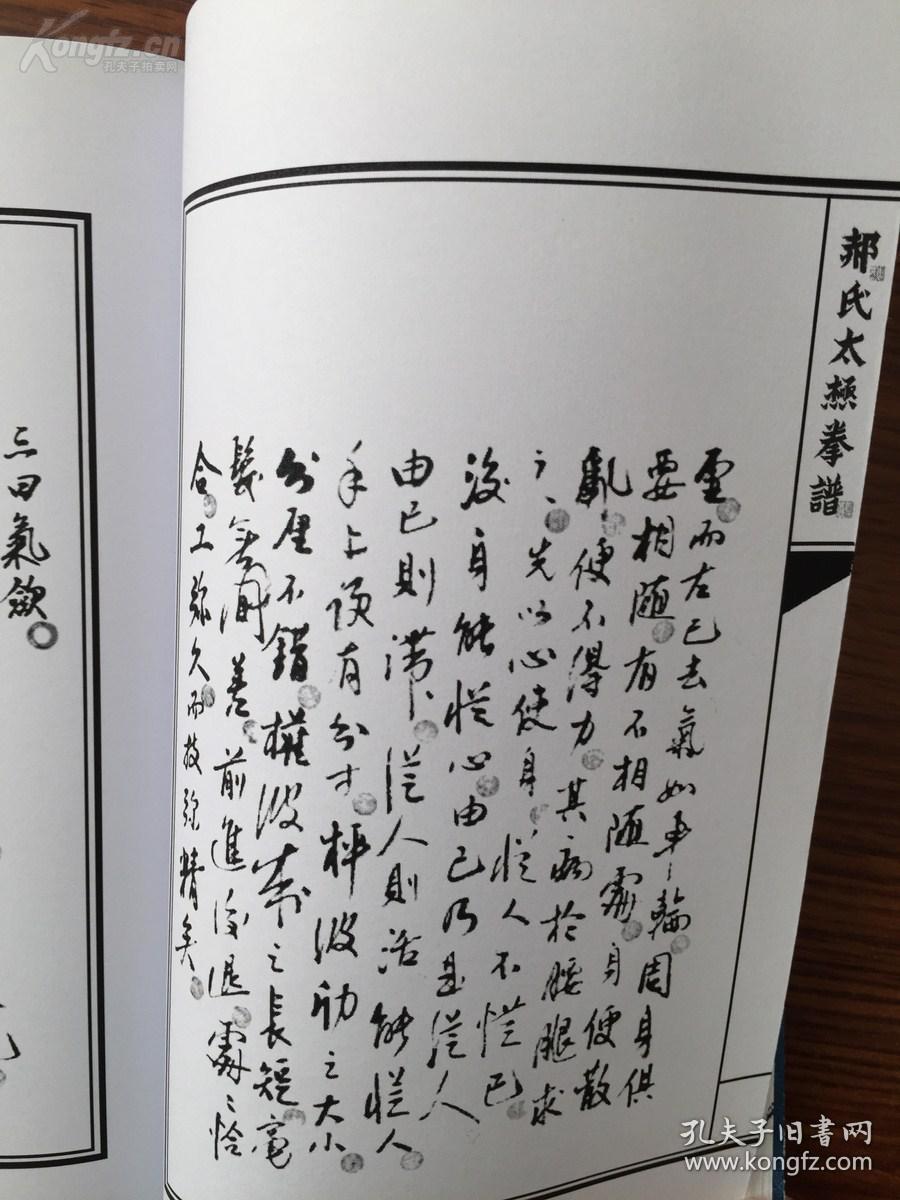 Kongfz.cn
孔夫子拍卖网
郝氏太極拳譜
虛而左已去氣如車輪周身俱
要相随有不相随處身便散
亂便不得力其病於腰腿求
之先以心使身從人不從己
後身能從心由己乃是從人
由己則滯從人則活能從人
手上便有分寸秤彼劲之大小
分厘不錯權彼來之長短毫
髮無差前進後退處〻恰
合工弥久而技弥精矣
田氣歛
孔夫子旧书网
www.kongfz.com